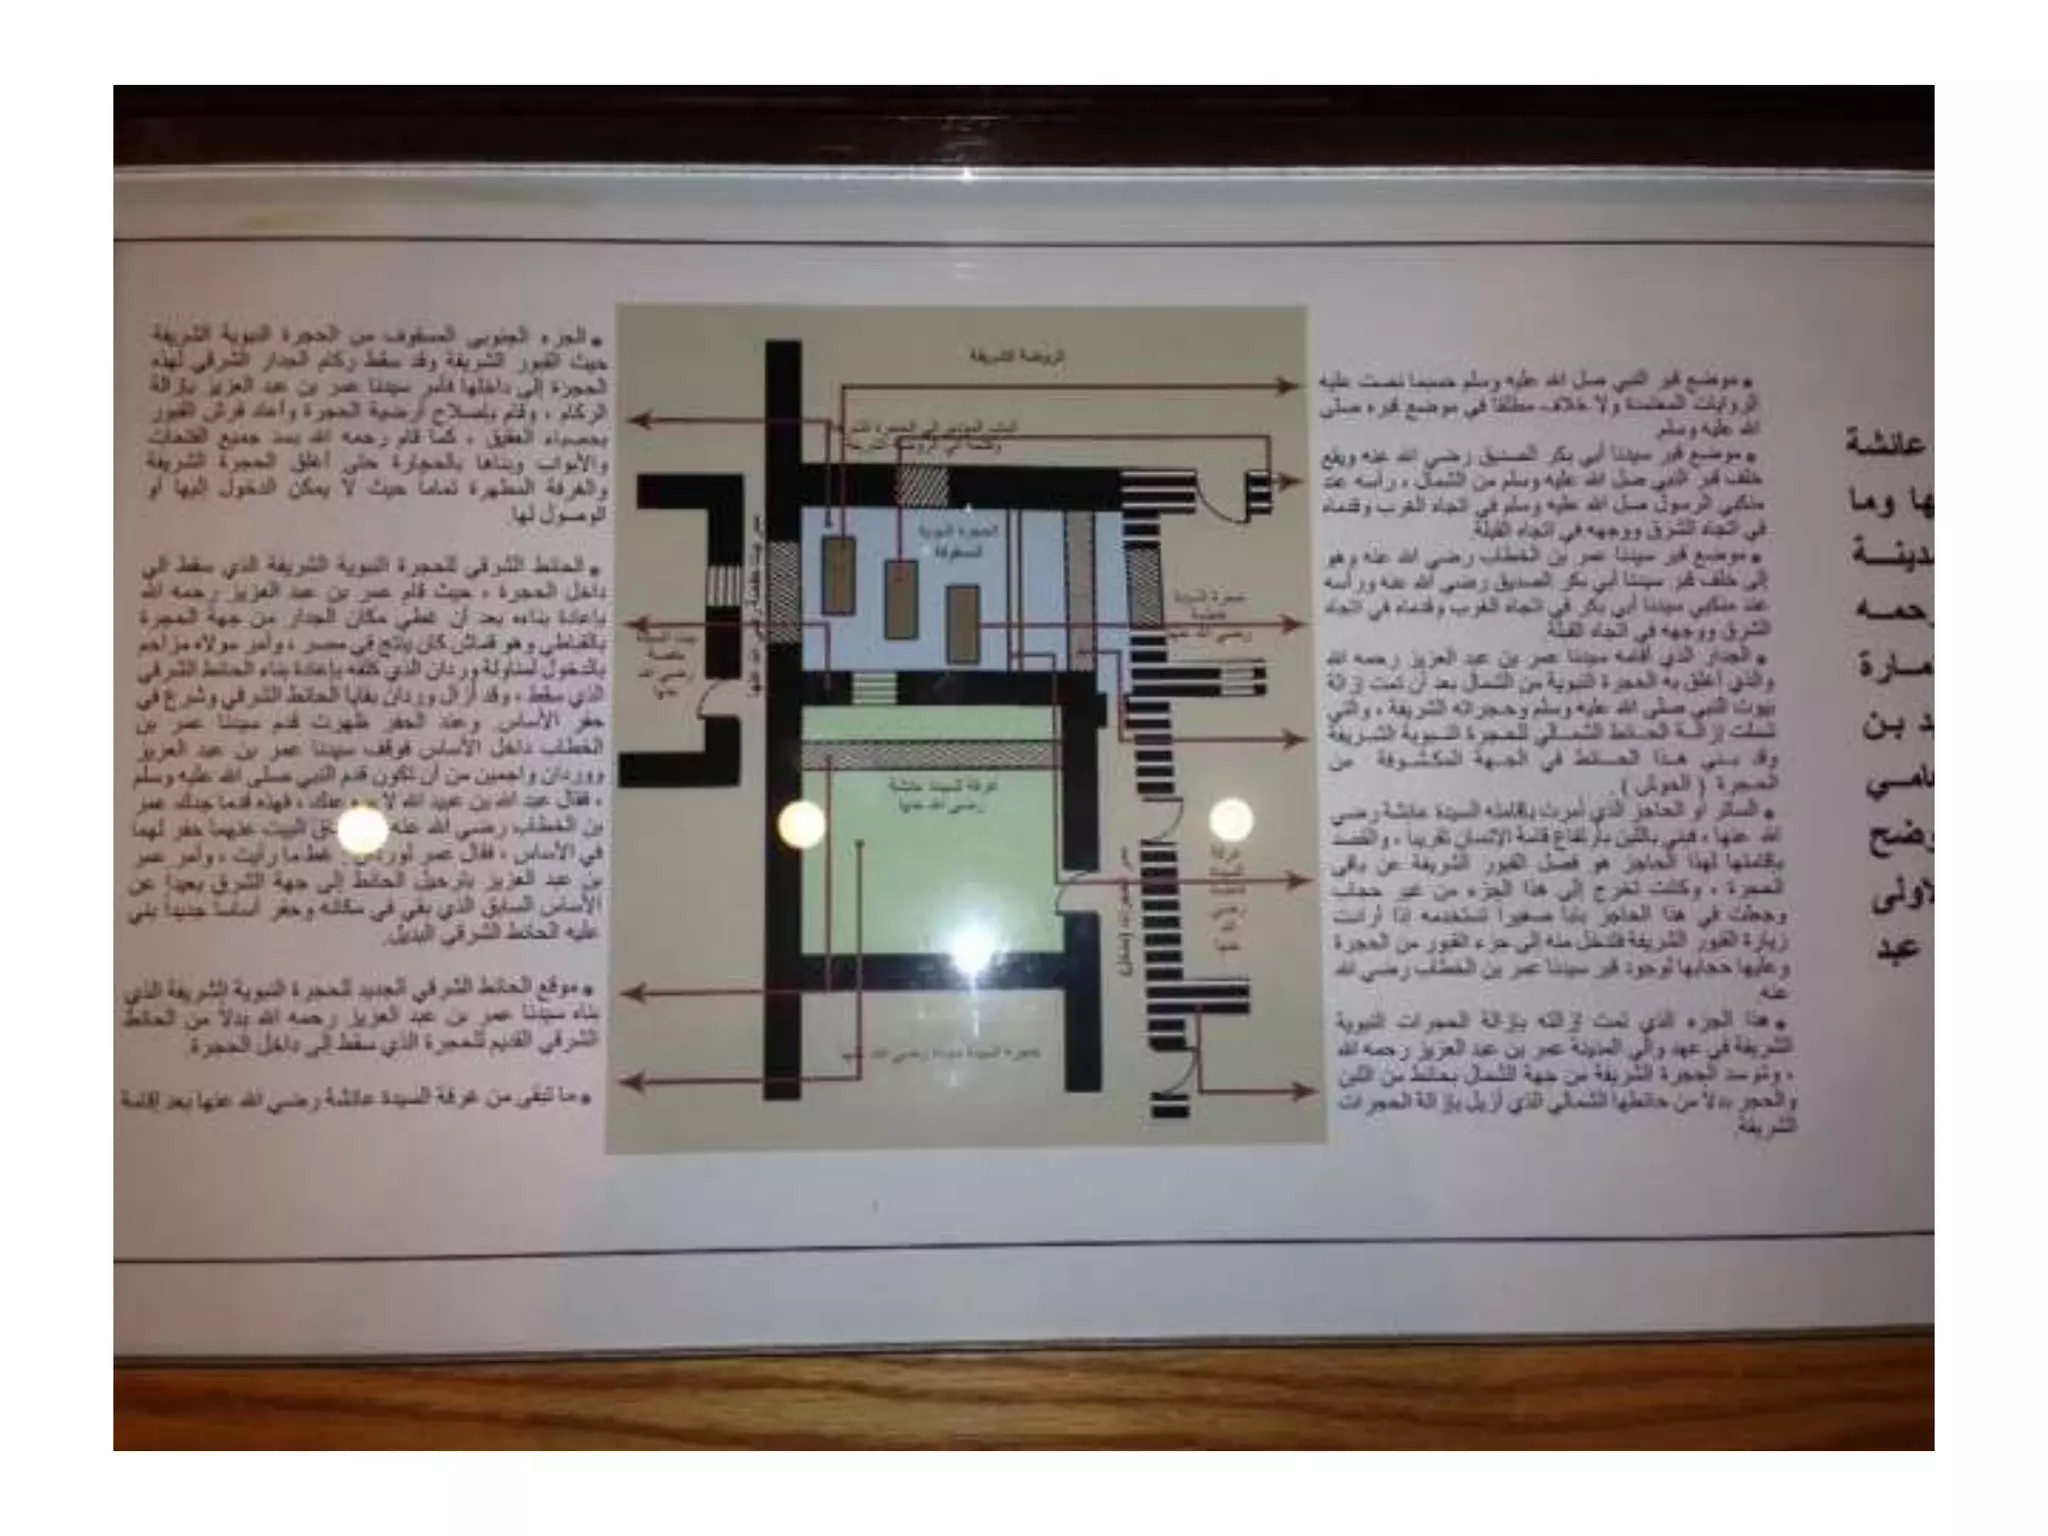 عائشة
ها وما
رحمه
د بن
عبد
• موضع قبر النبي صل الله عليه وسلم حسبما نصت عليه
الروايات المعتمدة ولا خلاف مطلقا في موضع قبره صلى
الله عليه وسلم
• موضع قبر سيدنا أبي بكر الصديق رضي الله عنه ويقع
خلف قبر النبي صل الله عليه وسلم من الشمال ، رأسه عند
منكبي الرسول صل الله عليه وسلم في اتجاه الغرب وقدماه
في اتجاه الشرق ووجهه في اتجاه القبلة
• موضع قبر سيدنا عمر بن الخطاب رضي الله عنه وهو
إلى خلف قبر سيدنا أبي بكر الصديق رضي الله عنه ورأسه
عند منكبي سيدنا أبي بكر في اتجاه الغرب وقدماه في اتجاه
الشرق ووجهه في اتجاه القبلة
• الجدار الذي أقامه سيدنا عمر بن عبد العزيز رحمه الله
والذي أغلق به الحجرة النبوية من الشمال بعد أن تمت إزالة
بيوت النبي صلى الله عليه وسلم وحجراته الشريفة ، والتي
شملت إزالة الحائط الشمالي للحجرة النبوية الشريفة
وقد بني هذا الحائط في الجهة المكشوفة من
الحجرة ( الحوش )
• الساتر أو الحاجز الذي أمرت بإقامته السيدة عائشة رضي
الله عنها ، فبني باللبن بارتفاع قامة الإنسان تقريبا ، والقصد
بإقامتها لهذا الحاجز هو فصل القبور الشريفة عن باقي
الحجرة ، وكانت تخرج إلى هذا الجزء من غير حجاب
وجعلت في هذا الحاجز بابا صغيرا تستخدمه إذا أرادت
زيارة القبور الشريفة فتدخل منه إلى جزء القبور من الحجرة
وعليها حجابها لوجود قبر سيدنا عمر بن الخطاب رضي الله
عنه
• هذا الجزء الذي تمت إزالته بإزالة الحجرات النبوية
الشريفة في عهد والي المدينة عمر بن عبد العزيز رحمه الله
، وتم سد الحجرة الشريفة من جهة الشمال بحائط من اللبن
والحجر بدلا من حائطها الشمالي الذي أزيل بإزالة الحجرات
الشريفة.
الروضة الشريفة
الحجرة النبوية
المسقوفة
حجرة السيدة
فاطمة
رضي الله عنها
بيت السيدة
حفصة
رضي الله
عنها
غرفة السيدة عائشة
رضي الله عنها
حجرة السيدة سودة رضي الله عنها
• الجزء الجنوبي المسقوف من الحجرة النبوية الشريفة
حيث القبور الشريفة وقد سقط ركام الجدار الشرقي لهذه
الحجرة إلى داخلها فأمر سيدنا عمر بن عبد العزيز بإزالة
الركام ، وقام بإصلاح أرضية الحجرة وأعاد فرش القبور
بحصباء العقيق ، كما قام رحمه الله بسد جميع الفتحات
والأبواب وبناها بالحجارة حتى أغلق الحجرة الشريفة
والغرفة المطهرة تماما حيث لا يمكن الدخول إليها أو
الوصول لها.
• الحائط الشرقي للحجرة النبوية الشريفة الذي سقط الى
داخل الحجرة ، حيث قام عمر بن عبد العزيز رحمه الله
بإعادة بناءه بعد أن غطي مكان الجدار من جهة الحجرة
بالقباطي وهو قماش كان ينتج في مصر ، وأمر مولاه مزاحم
بالدخول لمناولة وردان الذي كلفه بإعادة بناء الحائط الشرقي
الذي سقط ، وقد أزال وردان بقايا الحائط الشرقي وشرع في
حفر الأساس. وعند الحفر ظهرت قدم سيدنا عمر بن
الخطاب داخل الأساس فوقف سيدنا عمر بن عبد العزيز
ووردان واجمين من أن تكون قدم النبي صلى الله عليه وسلم
، فقال عبد الله بن عبيد الله لا عنك ، فهذه قدما جدك عمر
بن الخطاب رضي الله عنه البيت عنهما حفر لهما
في الأساس ، فقال عمر غط ما رأيت ، وأمر عمر
بن عبد العزيز بترحيل الحائط إلى جهة الشرق بعيدا عن
الأساس السابق الذي بقي في مكانه وحفر أساسا جديدا بني
عليه الحائط الشرقي البديل.
• موقع الحائط الشرقي الجديد للحجرة النبوية الشريفة الذي
بناه سيدنا عمر بن عبد العزيز رحمه الله بدلا من الحائط
الشرقي القديم للحجرة الذي سقط إلى داخل الحجرة.
• ما تبقى من غرفة السيدة عائشة رضي الله عنها بعد إقامة